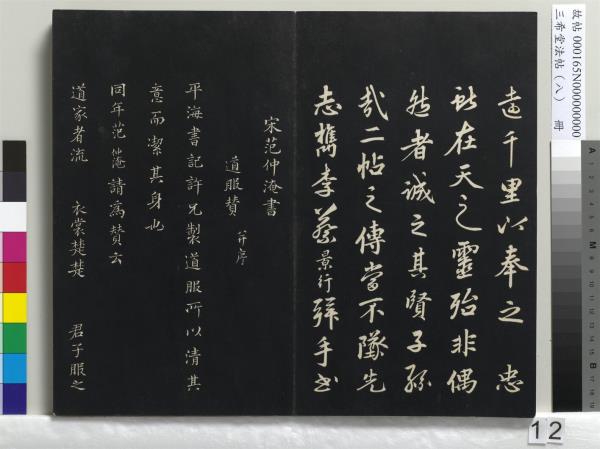 遠千里以奉之 忠
獻在天之靈殆非偶
然者誠之其賢子孫
哉二帖之傳當不墜先
志攜李蔡景行拜手書
宋范仲淹書
道服贊 并序
平海書記許兄製道服所以清其
意而潔其身也
同年范仲淹請為贊云
道家者流 衣裳楚楚 君子服之
故帖000165N000000000
三希堂法帖(八) 冊
12